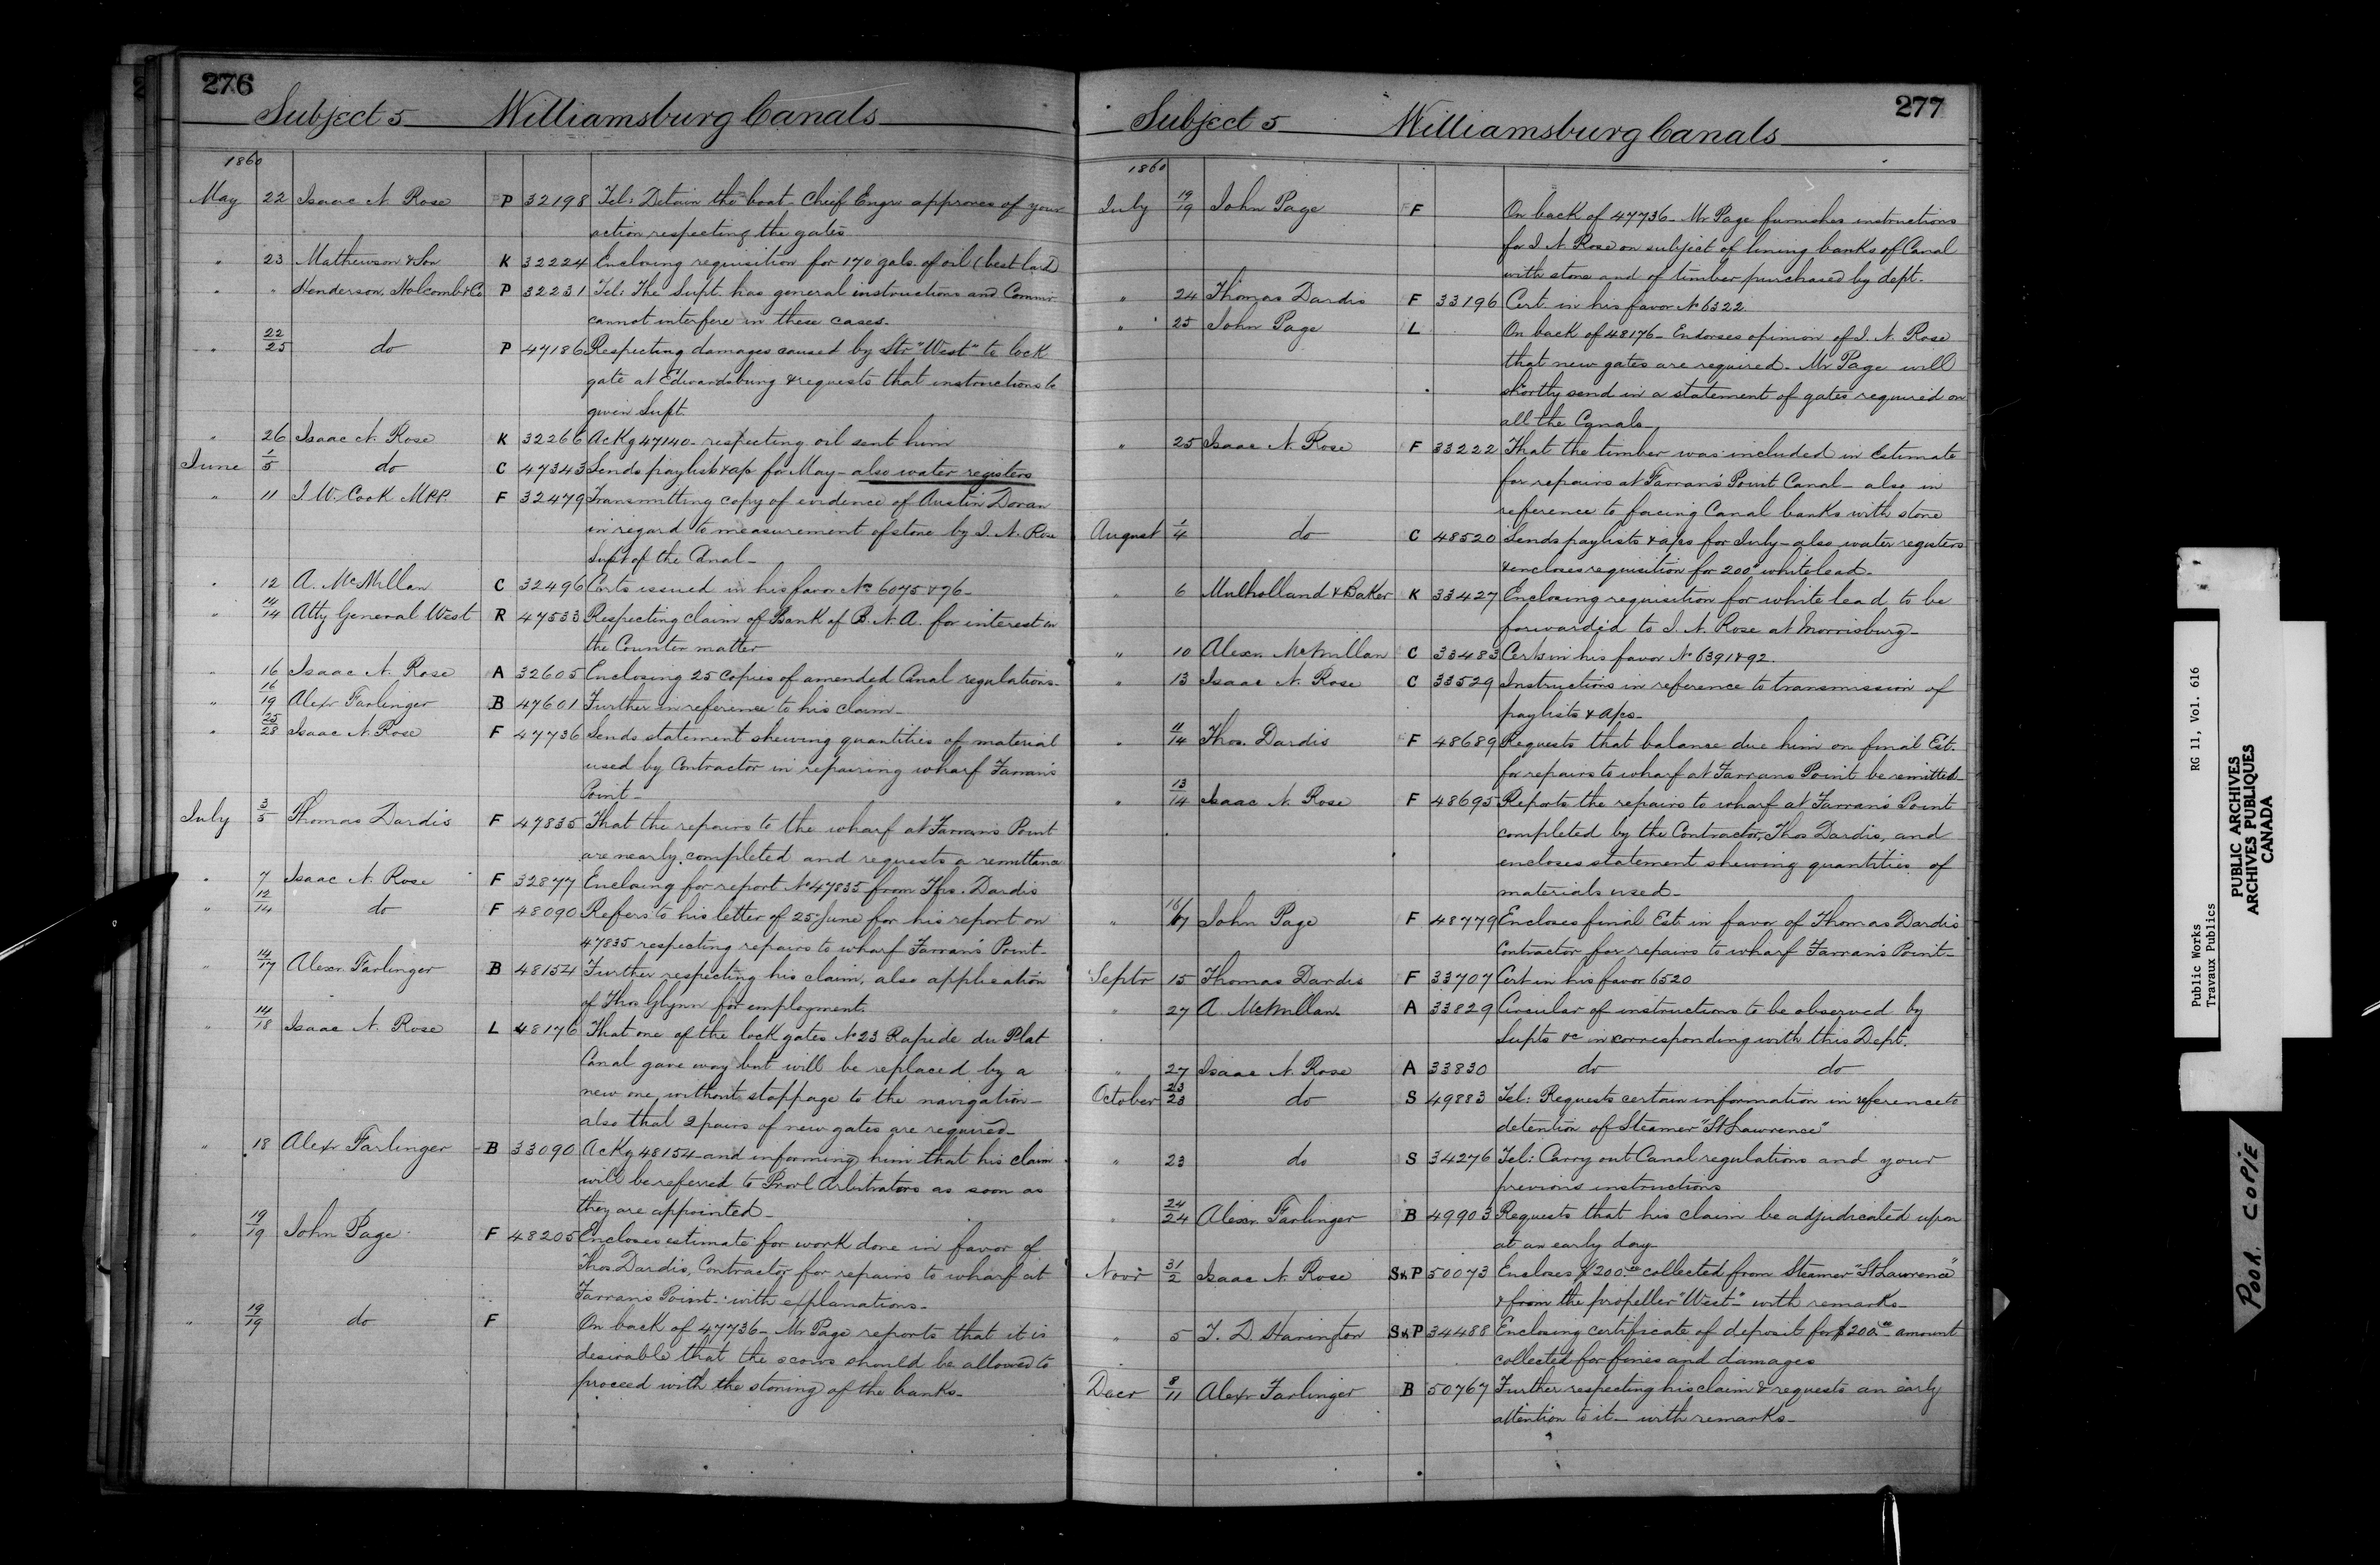 276
Subject 5 Williamsburg Canals
1860
May 22 Isaac N. Rose P 32198 Tel: Detain the boat - Chief Engr approves of your
action respecting the gates
" 23 Mathewson & Son K 32224 Enclosing requisition for 170 gals. of oil (best lard)
" " Henderson, Holcomb & Co P 32231 Tel: The Supt. has general instructions and Commr.
cannot interfere in these cases.
" 22/25 do P 47186 Respecting damages caused by Str "West" to lock
gate at Edwardsburg & requests that instructions be
given Supt.
" 26 Isaac N. Rose K 32266 Ackg 47140 - respecting oil sent him
June 1/5 do C 47343 Sends paylist & ap for May - also water registers
" 11 J. W. Cook MPP. F 32479 Transmitting copy of evidence of Austin Doran
in regard to measurement of stone by I. N. Rose
Supt of the Canal -
" 12 A. McMillan C 32496 Certs issued in his favor Nos 6075 & 76 -
" 14/14 Atty General West R 47533 Respecting claim of Bank of B. N. A. for interest in
the Counter matter
" 16 Isaac N. Rose A 32605 Enclosing 25 copies of amended Canal regulations -
" 16/19 Alexr Farlinger B 47601 Further in reference to his claim -
" 25/28 Isaac N. Rose F 47736 Sends statement shewing quantities of material
used by Contractor in repairing wharf Farran's
Point -
July 3/5 Thomas Dardis F 47835 That the repairs to the wharf at Farrans Point
are nearly completed and requests a remittance
" 7 Isaac N. Rose F 32877 Enclosing for report No 47835 from Thos. Dardis
" 12/14 do F 48090 Refers to his letter of 25 June for his report on
47835 respecting repairs to wharf Farran's Point -
" 14/17 Alexr. Farlinger B 48154 Further respecting his claim, also application
of Thos Glynn for employment.
" 14/18 Isaac N. Rose L 48176 That one of the lock gates No 23 Rapide du Plat
Canal gave way but will be replaced by a
new one, without stoppage to the navigation -
also that 2 pairs of new gates are required -
" 18 Alexr Farlinger B 33090 Ackg 48154 - and informing him that his claim
will be referred to Provl Arbitrators as soon as
they are appointed -
" 19/19 John Page F 48205 Encloses estimate for work done in favor of
Thos Dardis, Contractor for repairs to wharf at
Farrans Point - with explanations -
" 19/19 do F On back of 47736 - Mr Page reports that it is
desirable that the scows should be allowed to
proceed with the stoning of the banks -
277
Subject 5 Williamsburg Canals
1860
July 19/19 John Page F On back of 47736 - Mr Page furnishes instructions
for I. N. Rose on subject of lining banks of Canal
with stone and of timber purchased by dept.
" 24 Thomas Dardis F 33196 Cert. in his favor No 6322.
" 25 John Page L On back of 48176 - Endorses opinion of I. N. Rose
that new gates are required. Mr Page will
shortly send in a statement of gates required on
all the Canals -
" 25 Isaac N. Rose F 33222 That the timber was included in Estimate
for repairs at Farran's Point Canal - also in
reference to facing Canal banks with stone
August 1/4 do C 48520 Sends paylists & a/cs for July - also water registers
& encloses requisition for 200# white lead -
" 6 Mulholland & Baker K 33427 Enclosing requisition for white lead to be
forwarded to I. N. Rose at Morrisburg -
" 10 Alexr. McMillan C 33483 Certs in his favor No 6391 & 92.
" 13 Isaac N. Rose C 33529 Instructions in reference to transmission of
paylists & a/cs -
" 11/14 Thos. Dardis F 48689 Requests that balance due him on final Est.
for repairs to wharf at Farrans Point be remitted -
" 13/14 Isaac N. Rose F 48695 Reports the repairs to wharf at Farran's Point
completed by the Contractor, Thos Dardis, and
encloses statement shewing quantities of
materials used -
" 16/17 John Page F 48779 Encloses final Est. in favor of Thomas Dardis
Contractor for repairs to wharf Farran's Point -
Septr 15 Thomas Dardis F 33707 Cert in his favor 6520
" 27 A. McMillan A 33829 Circular of instructions to be observed by
Supts &c in corresponding with this Dept.
" 27 Isaac N. Rose A 33830 do do
October 23/23 do S 49883 Tel: Requests certain information in reference to
detention of Steamer "St Lawrence"
" 23 do S 34276 Tel: Carry out Canal regulations and your
previous instructions
" 24/24 Alexr. Farlinger B 49903 Requests that his claim be adjudicated upon
at an early day
Novr 31/2 Isaac N. Rose S & P 50073 Encloses $200.00 collected from Steamer "St Lawrence"
& from the propeller "West" - with remarks -
" 5 T. D. Harington S & P 34488 Enclosing certificate of deposit for $200.00 amount
collected for fines and damages
Decr 8/11 Alexr Farlinger B 50767 Further respecting his claim & requests an early
attention to it - with remarks -
Public Works RG 11, Vol. 616
Travaux Publics
PUBLIC ARCHIVES
ARCHIVES PUBLIQUES
CANADA
POOR COPIE